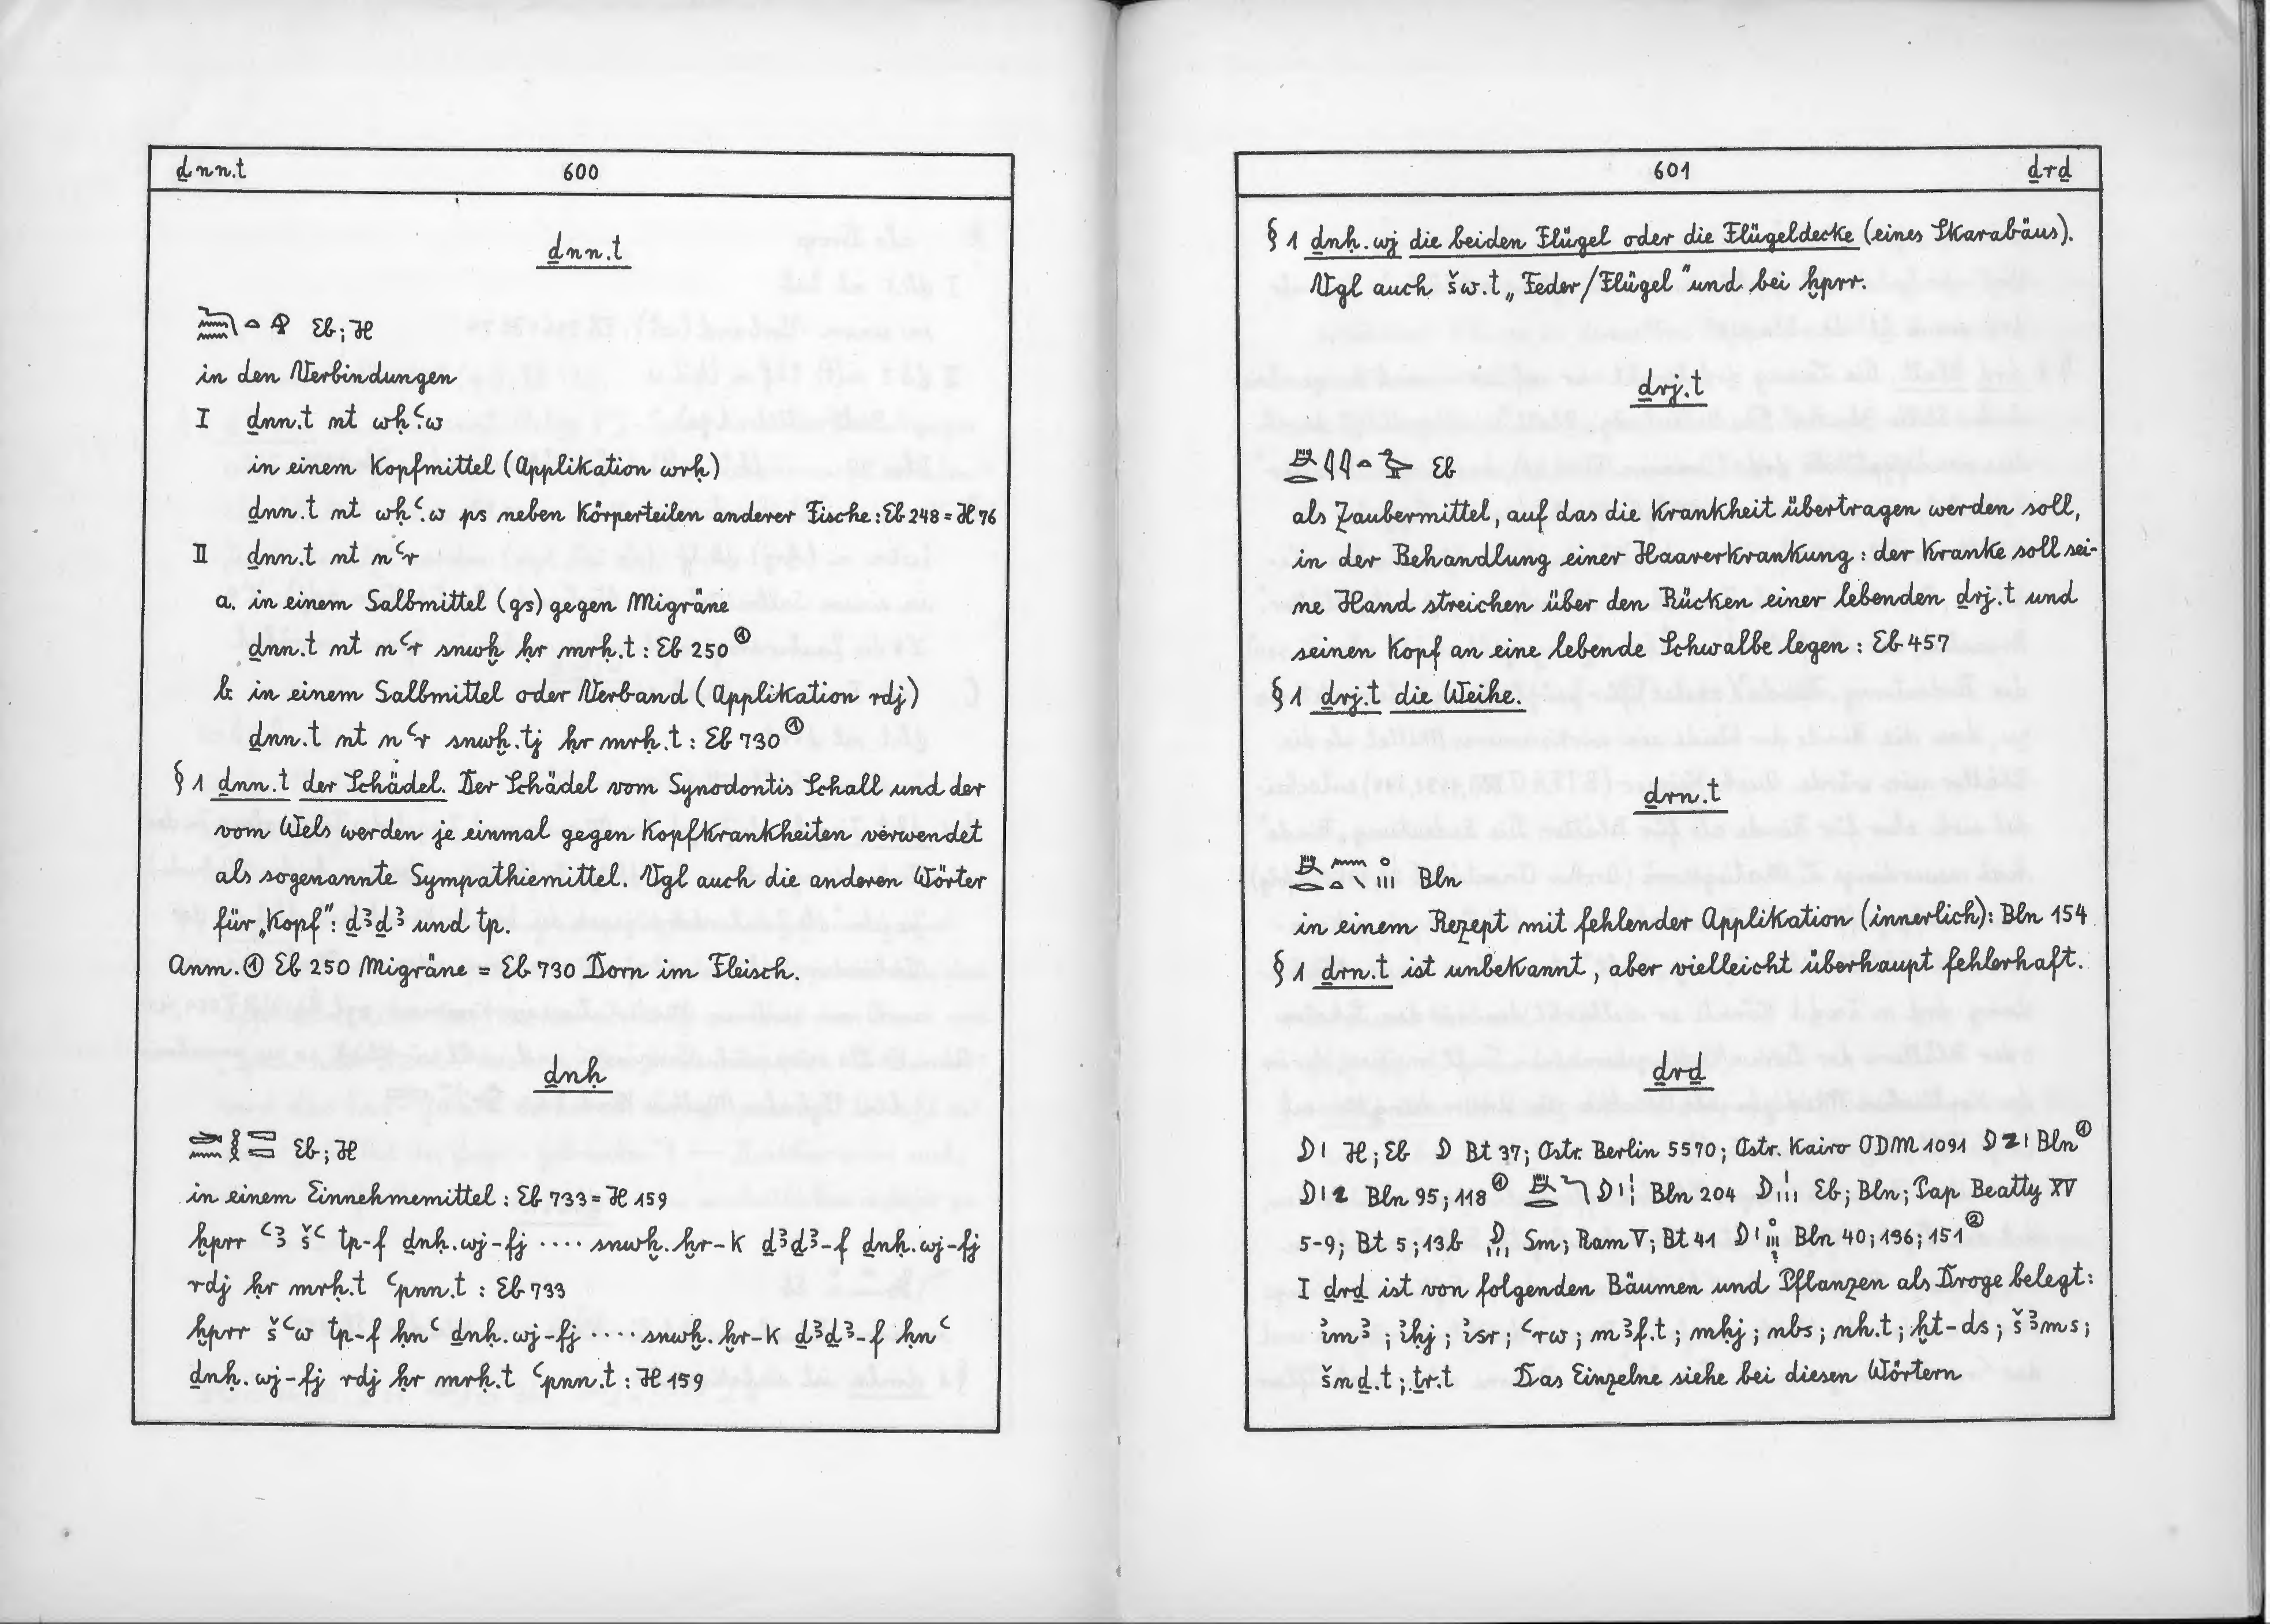 ḏnn.t 600
ḏnn.t
Eb; H
in den Verbindungen
I ḏnn.t nt wḥꜥ.w
in einem Kopfmittel (Applikation wrḥ)
ḏnn.t nt wḥꜥ.w ps neben Körperteilen anderer Fische: Eb 248 = H 76
II ḏnn.t nt nꜥr
a. in einem Salbmittel (gs) gegen Migräne
ḏnn.t nt nꜥr snwḫ ḥr mrḥ.t: Eb 250 ①
b. in einem Salbmittel oder Verband (Applikation rdj)
ḏnn.t nt nꜥr snwḫ.tj ḥr mrḥ.t: Eb 730 ①
§ 1 ḏnn.t der Schädel. Der Schädel vom Synodontis Schall und der
vom Wels werden je einmal gegen Kopfkrankheiten verwendet
als sogenannte Sympathiemittel. Vgl auch die anderen Wörter
für „Kopf": ḏꜣḏꜣ und tp.
Anm. ① Eb 250 Migräne = Eb 730 Dorn im Fleisch.
ḏnḥ
Eb; H
in einem Einnehmemittel: Eb 733 = H 159
ḫprr ꜥꜣ šꜥ tp-f ḏnḥ.wj-fj .... snwḫ.ḫr-k ḏꜣḏꜣ-f ḏnḥ.wj-fj
rdj ḥr mrḥ.t ꜥpnn.t : Eb 733
ḫprr šꜥw tp-f ḥnꜥ ḏnḥ.wj-fj .... snwḫ.ḫr-k ḏꜣḏꜣ-f ḥnꜥ
ḏnḥ.wj-fj rdj ḥr mrḥ.t ꜥpnn.t : H 159
601 ḏrḏ
§ 1 ḏnḥ.wj die beiden Flügel oder die Flügeldecke (eines Skarabäus).
Vgl auch šw.t „Feder/Flügel" und bei ḫprr.
ḏrj.t
Eb
als Zaubermittel, auf das die Krankheit übertragen werden soll,
in der Behandlung einer Haarerkrankung: der Kranke soll sei-
ne Hand streichen über den Rücken einer lebenden ḏrj.t und
seinen Kopf an eine lebende Schwalbe legen: Eb 457
§ 1 ḏrj.t die Weihe.
ḏrn.t
Bln
in einem Rezept mit fehlender Applikation (innerlich): Bln 154
§ 1 ḏrn.t ist unbekannt, aber vielleicht überhaupt fehlerhaft.
ḏrḏ
H; Eb Bt 37; Ostr. Berlin 5570; Ostr. Kairo ODM 1091 Bln ①
Bln 95; 118 ① Bln 204 Eb; Bln; Pap Beatty XV
5-9; Bt 5; 13b Sm; Ram V; Bt 41 Bln 40; 136; 151 ②
I ḏrḏ ist von folgenden Bäumen und Pflanzen als Droge belegt:
ỉmꜣ; ỉhj; ỉsr; ꜥrw; mꜣf.t; mḥj; nbs; nh.t; ḫt-ds; šꜣms;
šnḏ.t; ṯr.t Das Einzelne siehe bei diesen Wörtern